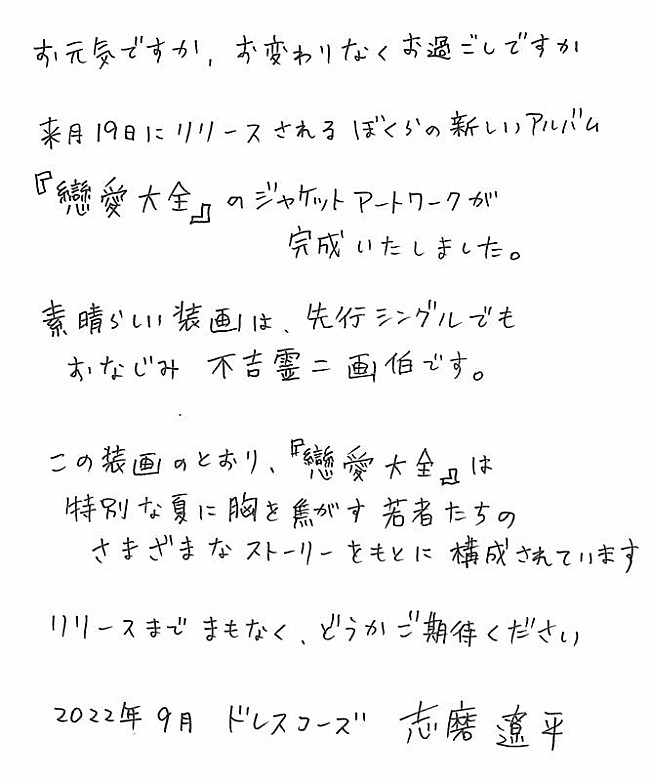 お元気ですか、お変わりなくお過ごしですか
来月19日にリリースされるぼくらの新しいアルバム
『戀愛大全』のジャケットアートワークが
完成いたしました。
素晴らしい装画は、先行シングルでも
おなじみ 不吉霊二 画伯です。
この装画のとおり、『戀愛大全』は
特別な夏に胸を焦がす若者たちの
さまざまなストーリーをもとに構成されています
リリースまでまもなく、どうかご期待ください
2022年9月 ドレスコーズ 志磨遼平